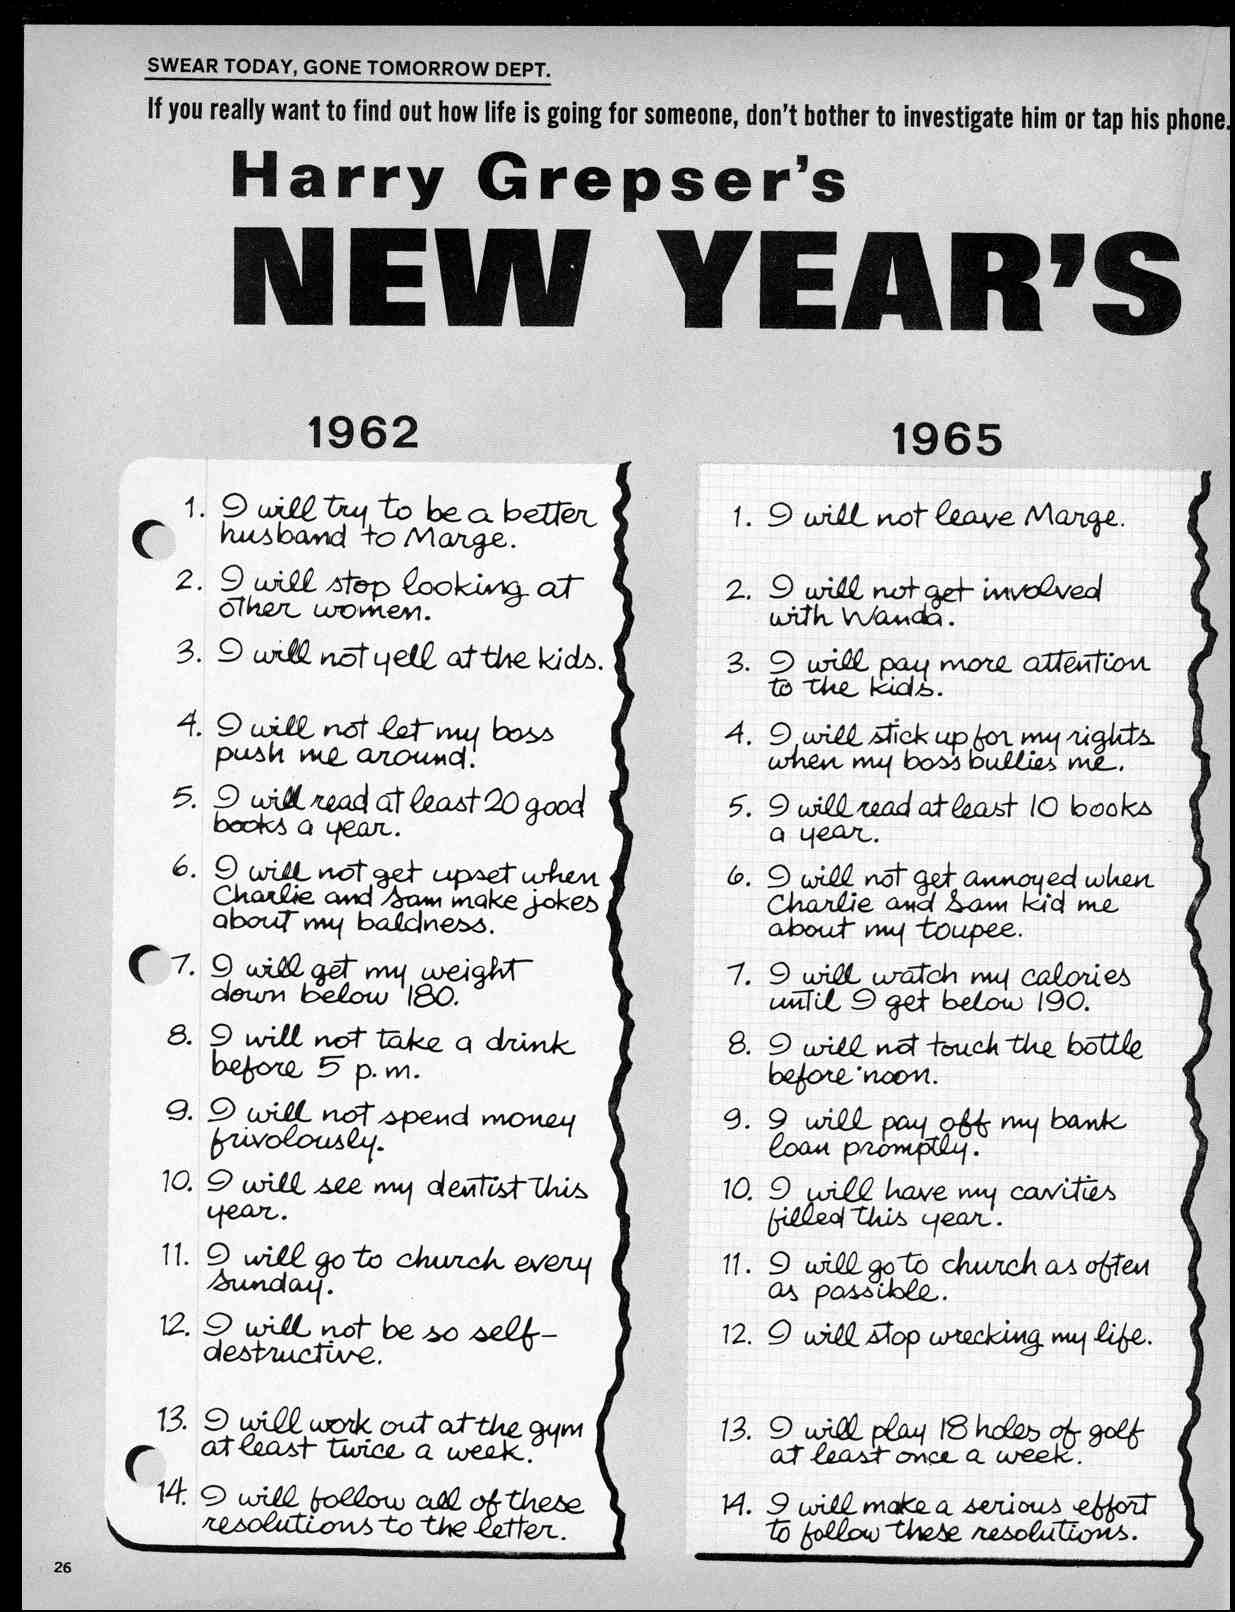 SWEAR TODAY, GONE TOMORROW DEPT.
If you really want to find out how life is going for someone, don't bother to investigate him or tap his phone.
Harry Grepser's
NEW YEAR'S
1962
1. I will try to be a better
husband to Marge.
2. I will stop looking at
other women.
3. I will not yell at the kids.
4. I will not let my boss
push me around.
5. I will read at least 20 good
books a year.
6. I will not get upset when
Charlie and Sam make jokes
about my baldness.
7. I will get my weight
down below 180.
8. I will not take a drink
before 5 p.m.
9. I will not spend money
frivolously.
10. I will see my dentist this
year.
11. I will go to church every
Sunday.
12. I will not be so self-
destructive.
13. I will work out at the gym
at least twice a week.
14. I will follow all of these
resolutions to the letter.
1965
1. I will not leave Marge.
2. I will not get involved
with Wanda.
3. I will pay more attention
to the kids.
4. I will stick up for my rights
when my boss bullies me.
5. I will read at least 10 books
a year.
6. I will not get annoyed when
Charlie and Sam kid me
about my toupee.
7. I will watch my calories
until I get below 190.
8. I will not touch the bottle
before noon.
9. I will pay off my bank
loan promptly.
10. I will have my cavities
filled this year.
11. I will go to church as often
as possible.
12. I will stop wrecking my life.
13. I will play 18 holes of golf
at least once a week.
14. I will make a serious effort
to follow these resolutions.
26